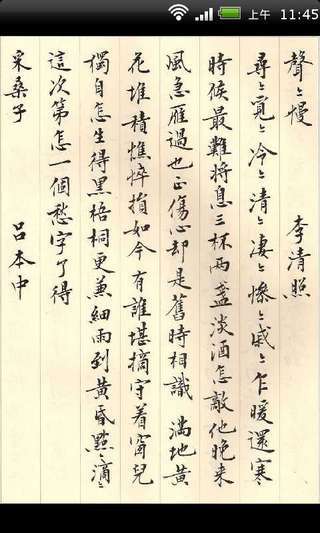 上午 11:45
聲〻慢 李清照
尋〻覓〻冷〻清〻凄〻慘〻戚〻乍暖還寒
時候最難將息三杯兩盞淡酒怎敵他晚來
風急雁過也正傷心却是舊時相識 滿地黃
花堆積憔悴損如今有誰堪摘守着窗兒
獨自怎生得黑梧桐更兼細雨到黃昏點〻滴〻
這次第怎一個愁字了得
采桑子 呂本中